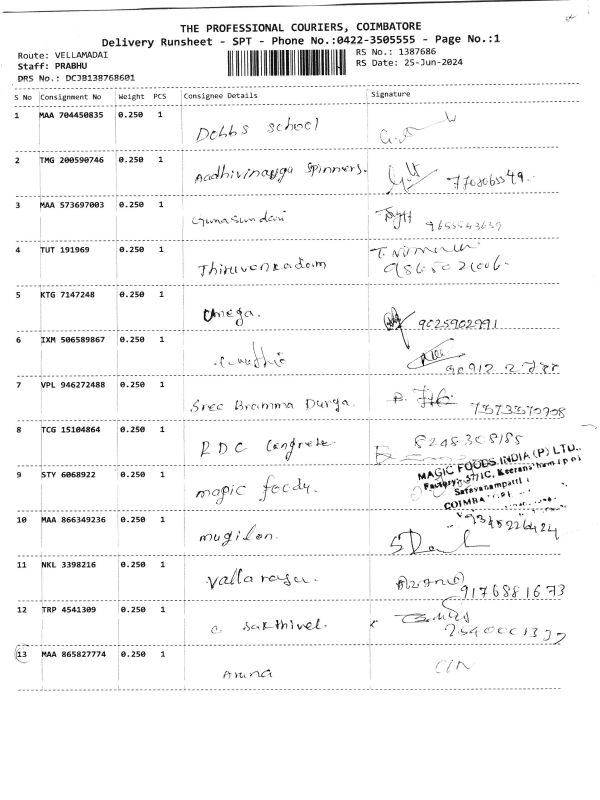 THE PROFESSIONAL COURIERS, COIMBATORE
Delivery Runsheet - SPT - Phone No.:0422-3505555 - Page No.:1
Route: VELLAMADAI RS No.: 1387686
Staff: PRABHU RS Date: 25-Jun-2024
DRS No.: DCJB138768601
S No Consignment No Weight PCS Consignee Details Signature
1 MAA 704450835 0.250 1 Dobbs school
2 TMG 200590746 0.250 1 Aadhivinayga Spinners.
3 MAA 573697003 0.250 1 Gunasundari
4 TUT 191969 0.250 1 Thiruvenkadam
5 KTG 7147248 0.250 1 Omega. 9025902991
6 IXM 506589867 0.250 1
7 VPL 946272488 0.250 1 Sree Bramma Durga.
8 TCG 15104864 0.250 1 RDC Congrete 8248308185
MAGIC FOODS INDIA (P) LTD.,
9 STY 6068922 0.250 1 magic foody.
10 MAA 866349236 0.250 1 mugilan.
11 NKL 3398216 0.250 1 Vallarasu. 9176881673
12 TRP 4541309 0.250 1 C sakthivel.
13 MAA 865827774 0.250 1 Aruna